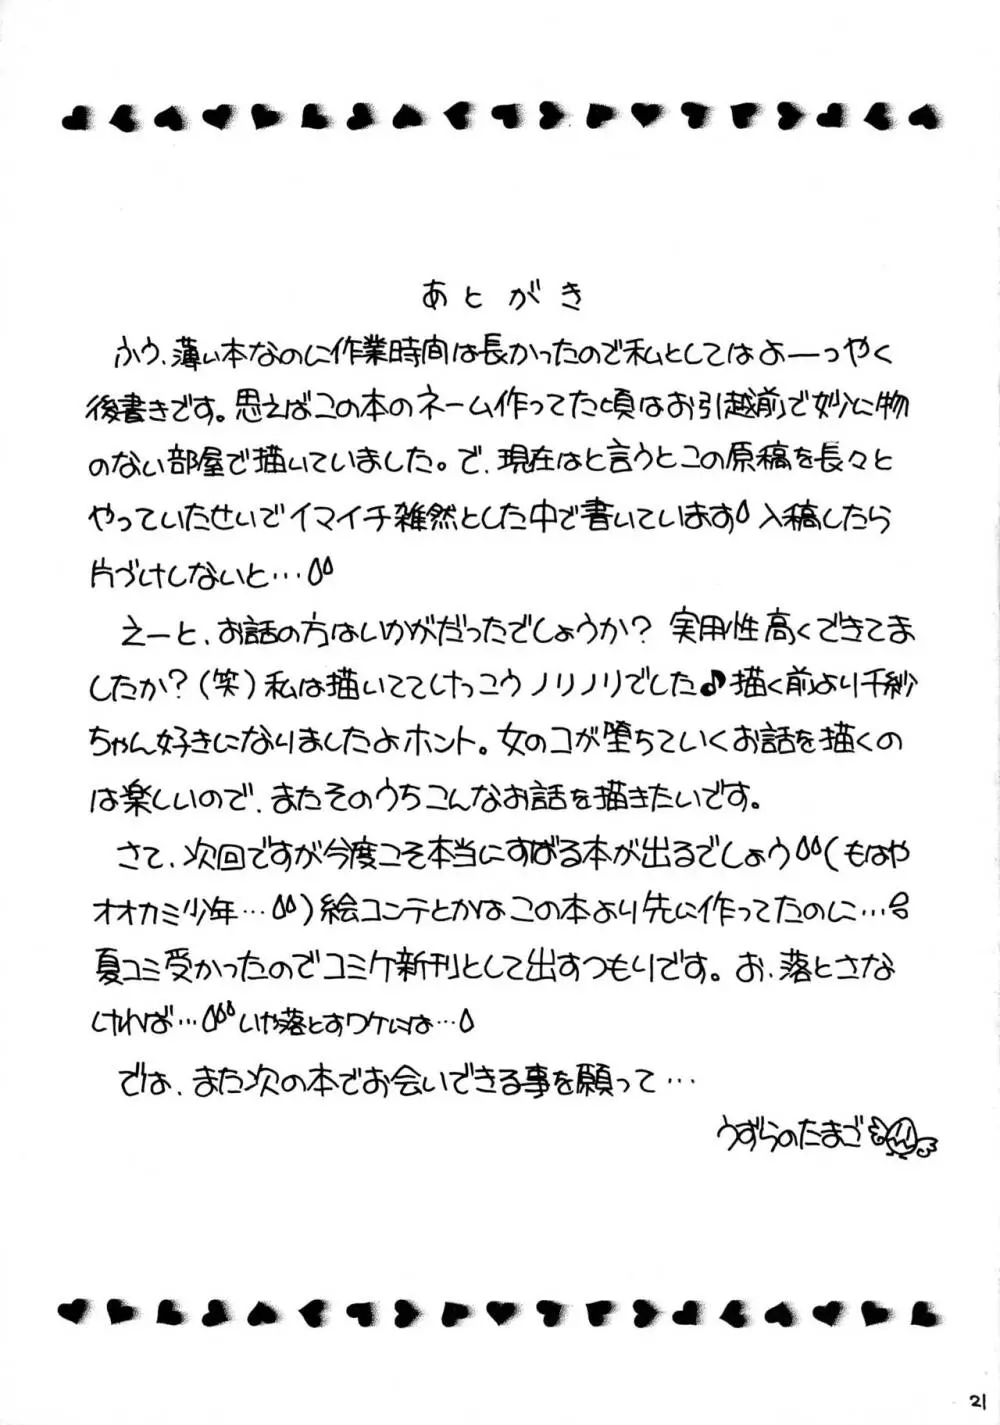 あとがき
ふう、薄い本なのに作業時間は長かったので私としてはよーっやく
後書きです。思えばこの本のネーム作ってた頃はお引越前で妙に物
のない部屋で描いていました。で、現在はと言うとこの原稿を長々と
やっていたせいでイマイチ雑然とした中で書いています 入稿したら
片づけしないと…
えーと、お話の方はいかがだったでしょうか？実用性高くできてま
したか？(笑)私は描いててけっこうノリノリでした♪描く前より千紗
ちゃん好きになりましたよホント。女のコが堕ちていくお話を描くの
は楽しいので、またそのうちこんなお話を描きたいです。
さて、次回ですが今度こそ本当にすばる本が出るでしょう(もはや
オオカミ少年…)絵コンテとかはこの本より先に作ってたのに…
夏コミ受かったのでコミケ新刊として出すつもりです。お、落とさな
ければ…いや落とすワケには…
では、また次の本でお会いできる事を願って…
うずらのたまご
21